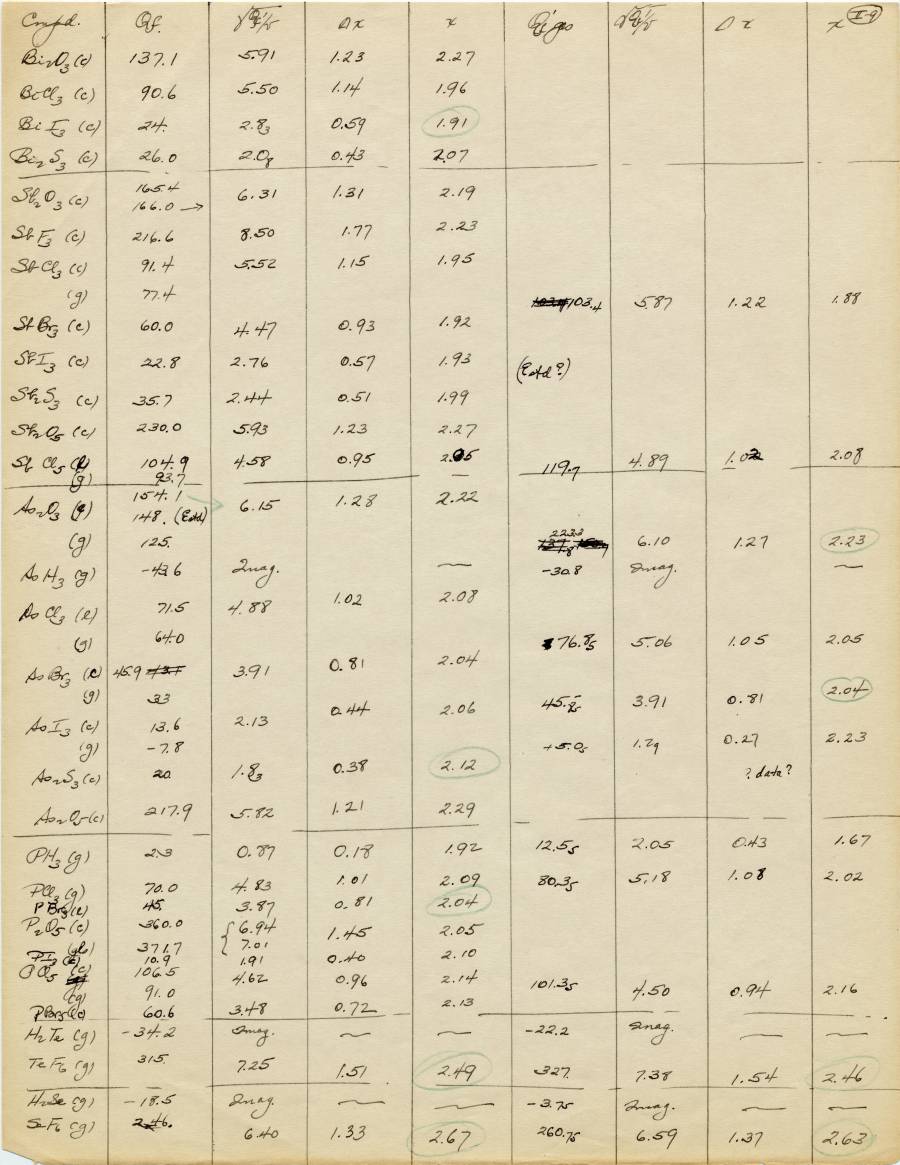 Cmpd. Qf. √Qf/v Δx x Qf gas √Qf/v Δx x I-9
Bi2O3 (c) 137.1 5.91 1.23 2.27
BiCl3 (c) 90.6 5.50 1.14 1.96
BiI3 (c) 24. 2.83 0.59 1.91
Bi2S3 (c) 26.0 2.08 0.43 2.07
165.4
Sb2O3 (c) 166.0 → 6.31 1.31 2.19
SbF3 (c) 216.6 8.50 1.77 2.23
SbCl3 (c) 91.4 5.52 1.15 1.95
(g) 77.4 103.4 5.87 1.22 1.88
SbBr3 (c) 60.0 4.47 0.93 1.92
SbI3 (c) 22.8 2.76 0.57 1.93 (Estd?)
Sb2S3 (c) 35.7 2.44 0.51 1.99
Sb2O5 (c) 230.0 5.93 1.23 2.27
SbCl5 (l) 104.9 4.58 0.95 2.05 119.7 4.89 1.02 2.08
(g) 93.7
154.1
As2O3 (c) 148. (Estd) 6.15 1.28 2.22
(g) 125. 223.3 6.10 1.27 2.23
AsH3 (g) -43.6 Imag. — -30.8 Imag. —
AsCl3 (l) 71.5 4.88 1.02 2.08
(g) 64.0 76.85 5.06 1.05 2.05
AsBr3 (c) 45.9 3.91 0.81 2.04
(g) 33 45.85 3.91 0.81 2.04
AsI3 (c) 13.6 2.13 0.44 2.06
(g) -7.8 +5.05 1.29 0.27 2.23
As2S3 (c) 20. 1.83 0.38 2.12 ? data?
As2O5 (c) 217.9 5.82 1.21 2.29
PH3 (g) 2.3 0.87 0.18 1.92 12.55 2.05 0.43 1.67
PCl3 (g) 70.0 4.83 1.01 2.09 80.35 5.18 1.08 2.02
PBr3 (l) 45. 3.87 0.81 2.04
P2O5 (c) 360.0 { 6.94 1.45 2.05
(gl) 371.7 7.01
PI3 (c) 10.9 1.91 0.40 2.10
PCl5 (c) 106.5 4.62 0.96 2.14
(g) 91.0 101.35 4.50 0.94 2.16
PBr5 (c) 60.6 3.48 0.72 2.13
H2Te (g) -34.2 Imag. — — -22.2 Imag. — —
TeF6 (g) 315. 7.25 1.51 2.49 327. 7.38 1.54 2.46
H2Se (g) -18.5 Imag. — — -3.75 Imag. — —
SeF6 (g) 246. 6.40 1.33 2.67 260.75 6.59 1.37 2.63